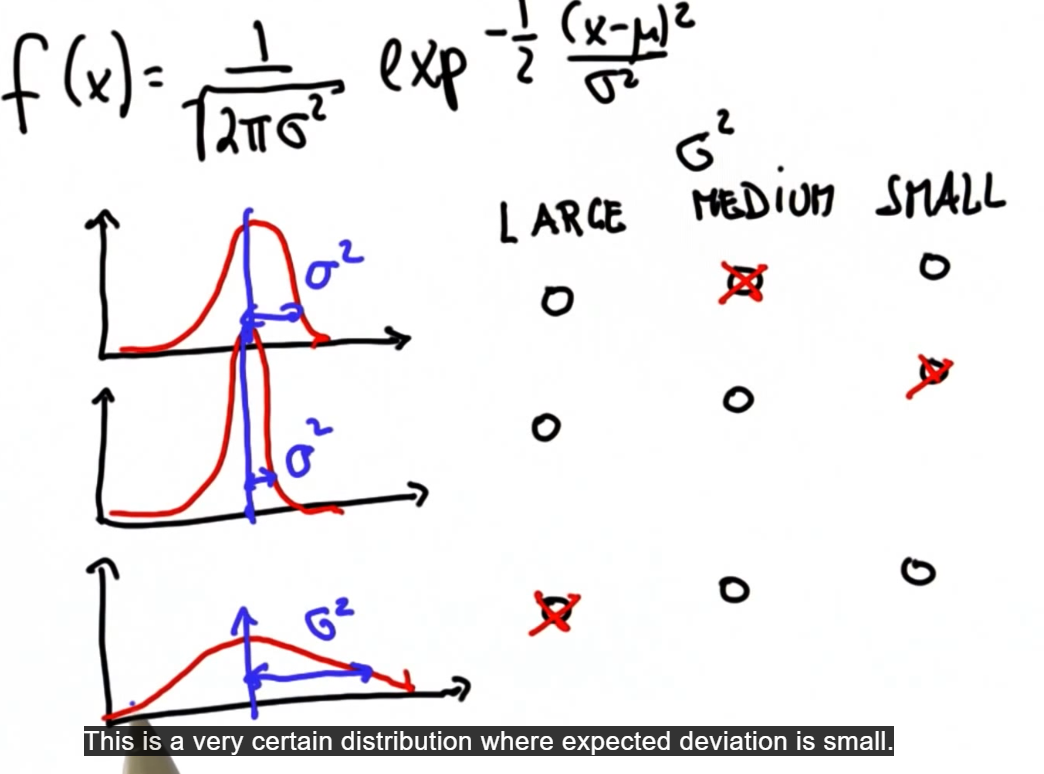 f(x) = 1/√(2πσ²) exp -1/2 (x-μ)²/σ²
σ²
LARGE MEDIUM SMALL
σ²
σ²
σ²
This is a very certain distribution where expected deviation is small.